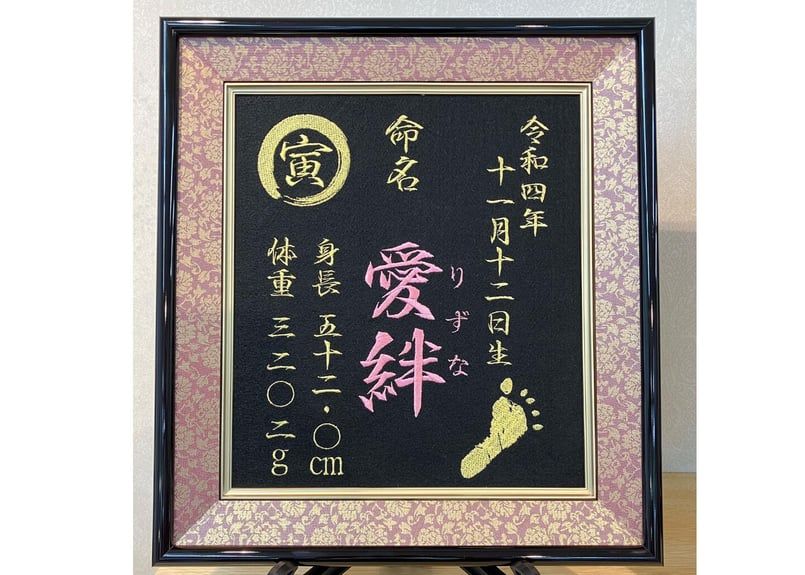 令和四年
十一月十二日生
命名
愛絆
りずな
寅
身長 五十二・〇cm
体重 三二〇二g